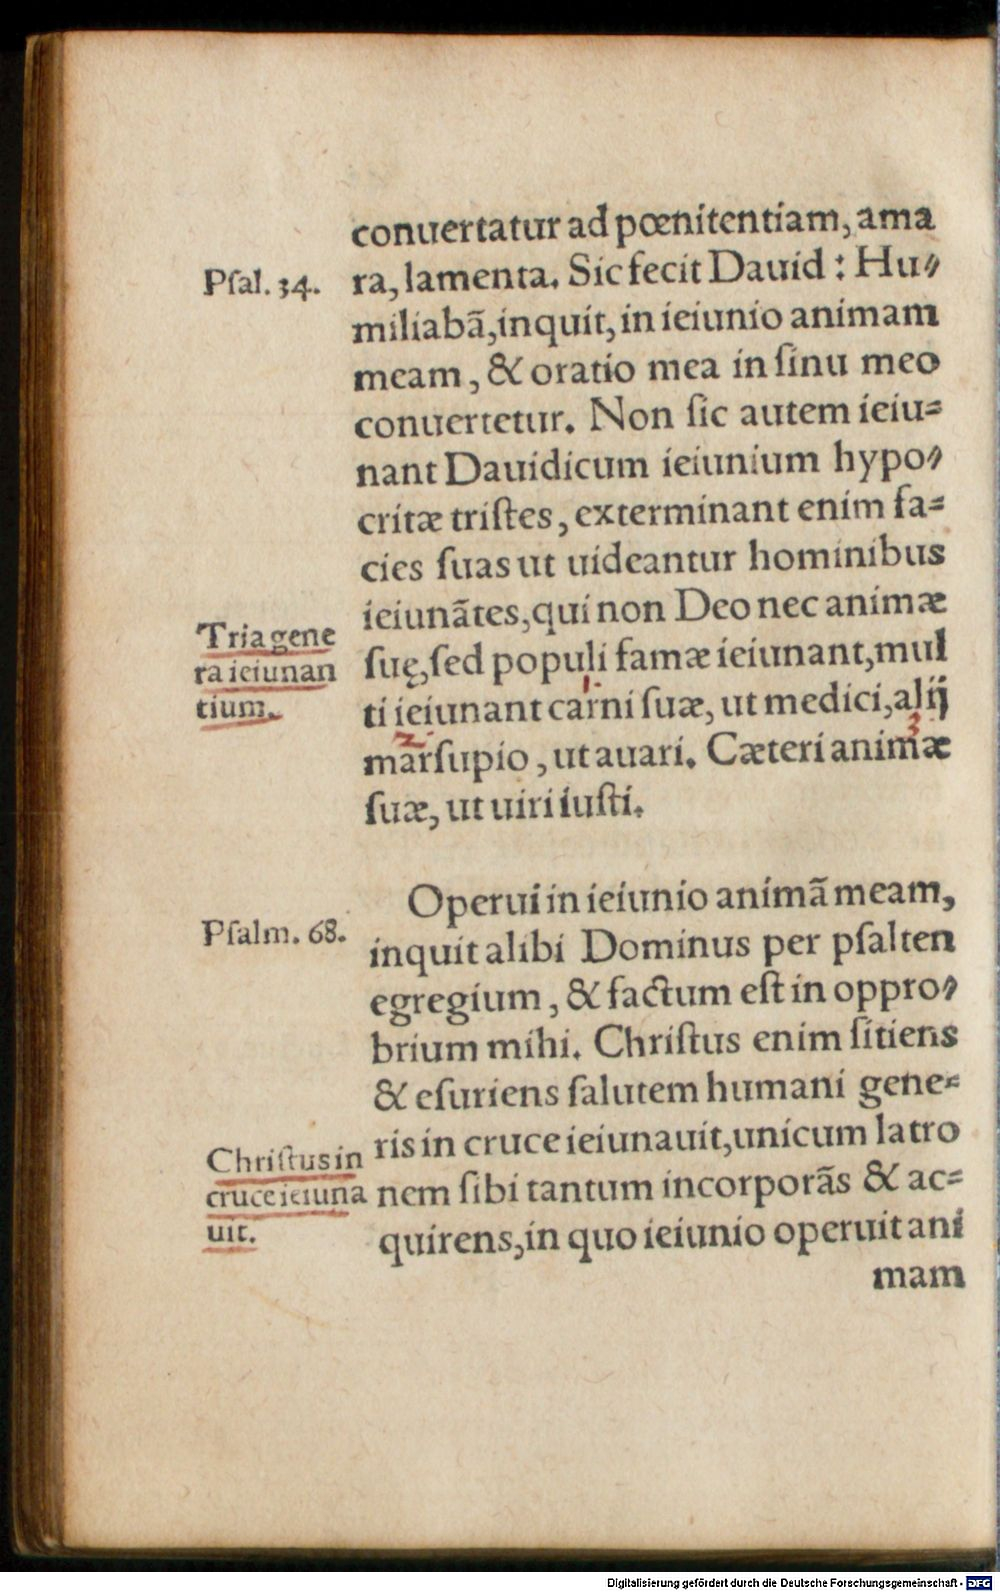 conuertatur ad pœnitentiam, ama
Pſal. 34.
ra, lamenta. Sic fecit Dauid : Hu⸗
miliabã, inquit, in ieiunio animam
meam, & oratio mea in ſinu meo
conuertetur. Non ſic autem ieiu⸗
nant Dauidicum ieiunium hypo⸗
critæ triſtes, exterminant enim fa⸗
cies ſuas ut uideantur hominibus
ieiunãtes, qui non Deo nec animæ
Tria gene
ra ieiunan
tium.
ſuę, ſed populi famæ ieiunant, mul
ti ieiunant carni ſuæ, ut medici, alij
marſupio, ut auari. Cæteri animæ
ſuæ, ut uiri iuſti.
Operui in ieiunio animã meam,
Pſalm. 68.
inquit alibi Dominus per pſalten
egregium, & factum eſt in oppro⸗
brium mihi. Chriſtus enim ſitiens
& eſuriens ſalutem humani gene⸗
ris in cruce ieiunauit, unicum latro
Chriſtus in
cruce ieiuna
uit.
nem ſibi tantum incorporãs & ac⸗
quirens, in quo ieiunio operuit ani
mam
Digitalisierung gefördert durch die Deutsche Forschungsgemeinschaft - DFG